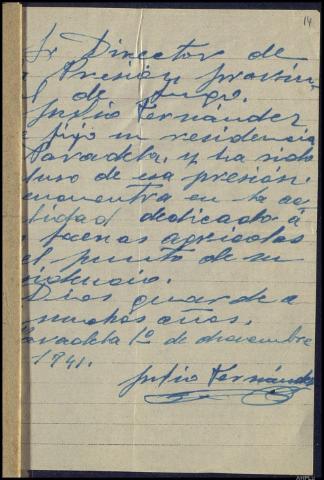 14
Sr Director de
a Presión provin
l de Lugo.
Julio Fernández
e fijo su residencia
Paradela, y ha sido
luso de esa presión.
ncuentra en la ac
tidad dedicado á
s faenas agricolas
el punto de su
sidencia.
Dios guarde a
muchos años.
Paradela 1º de diciembre
1941.
Julio Fernández
AHPLU